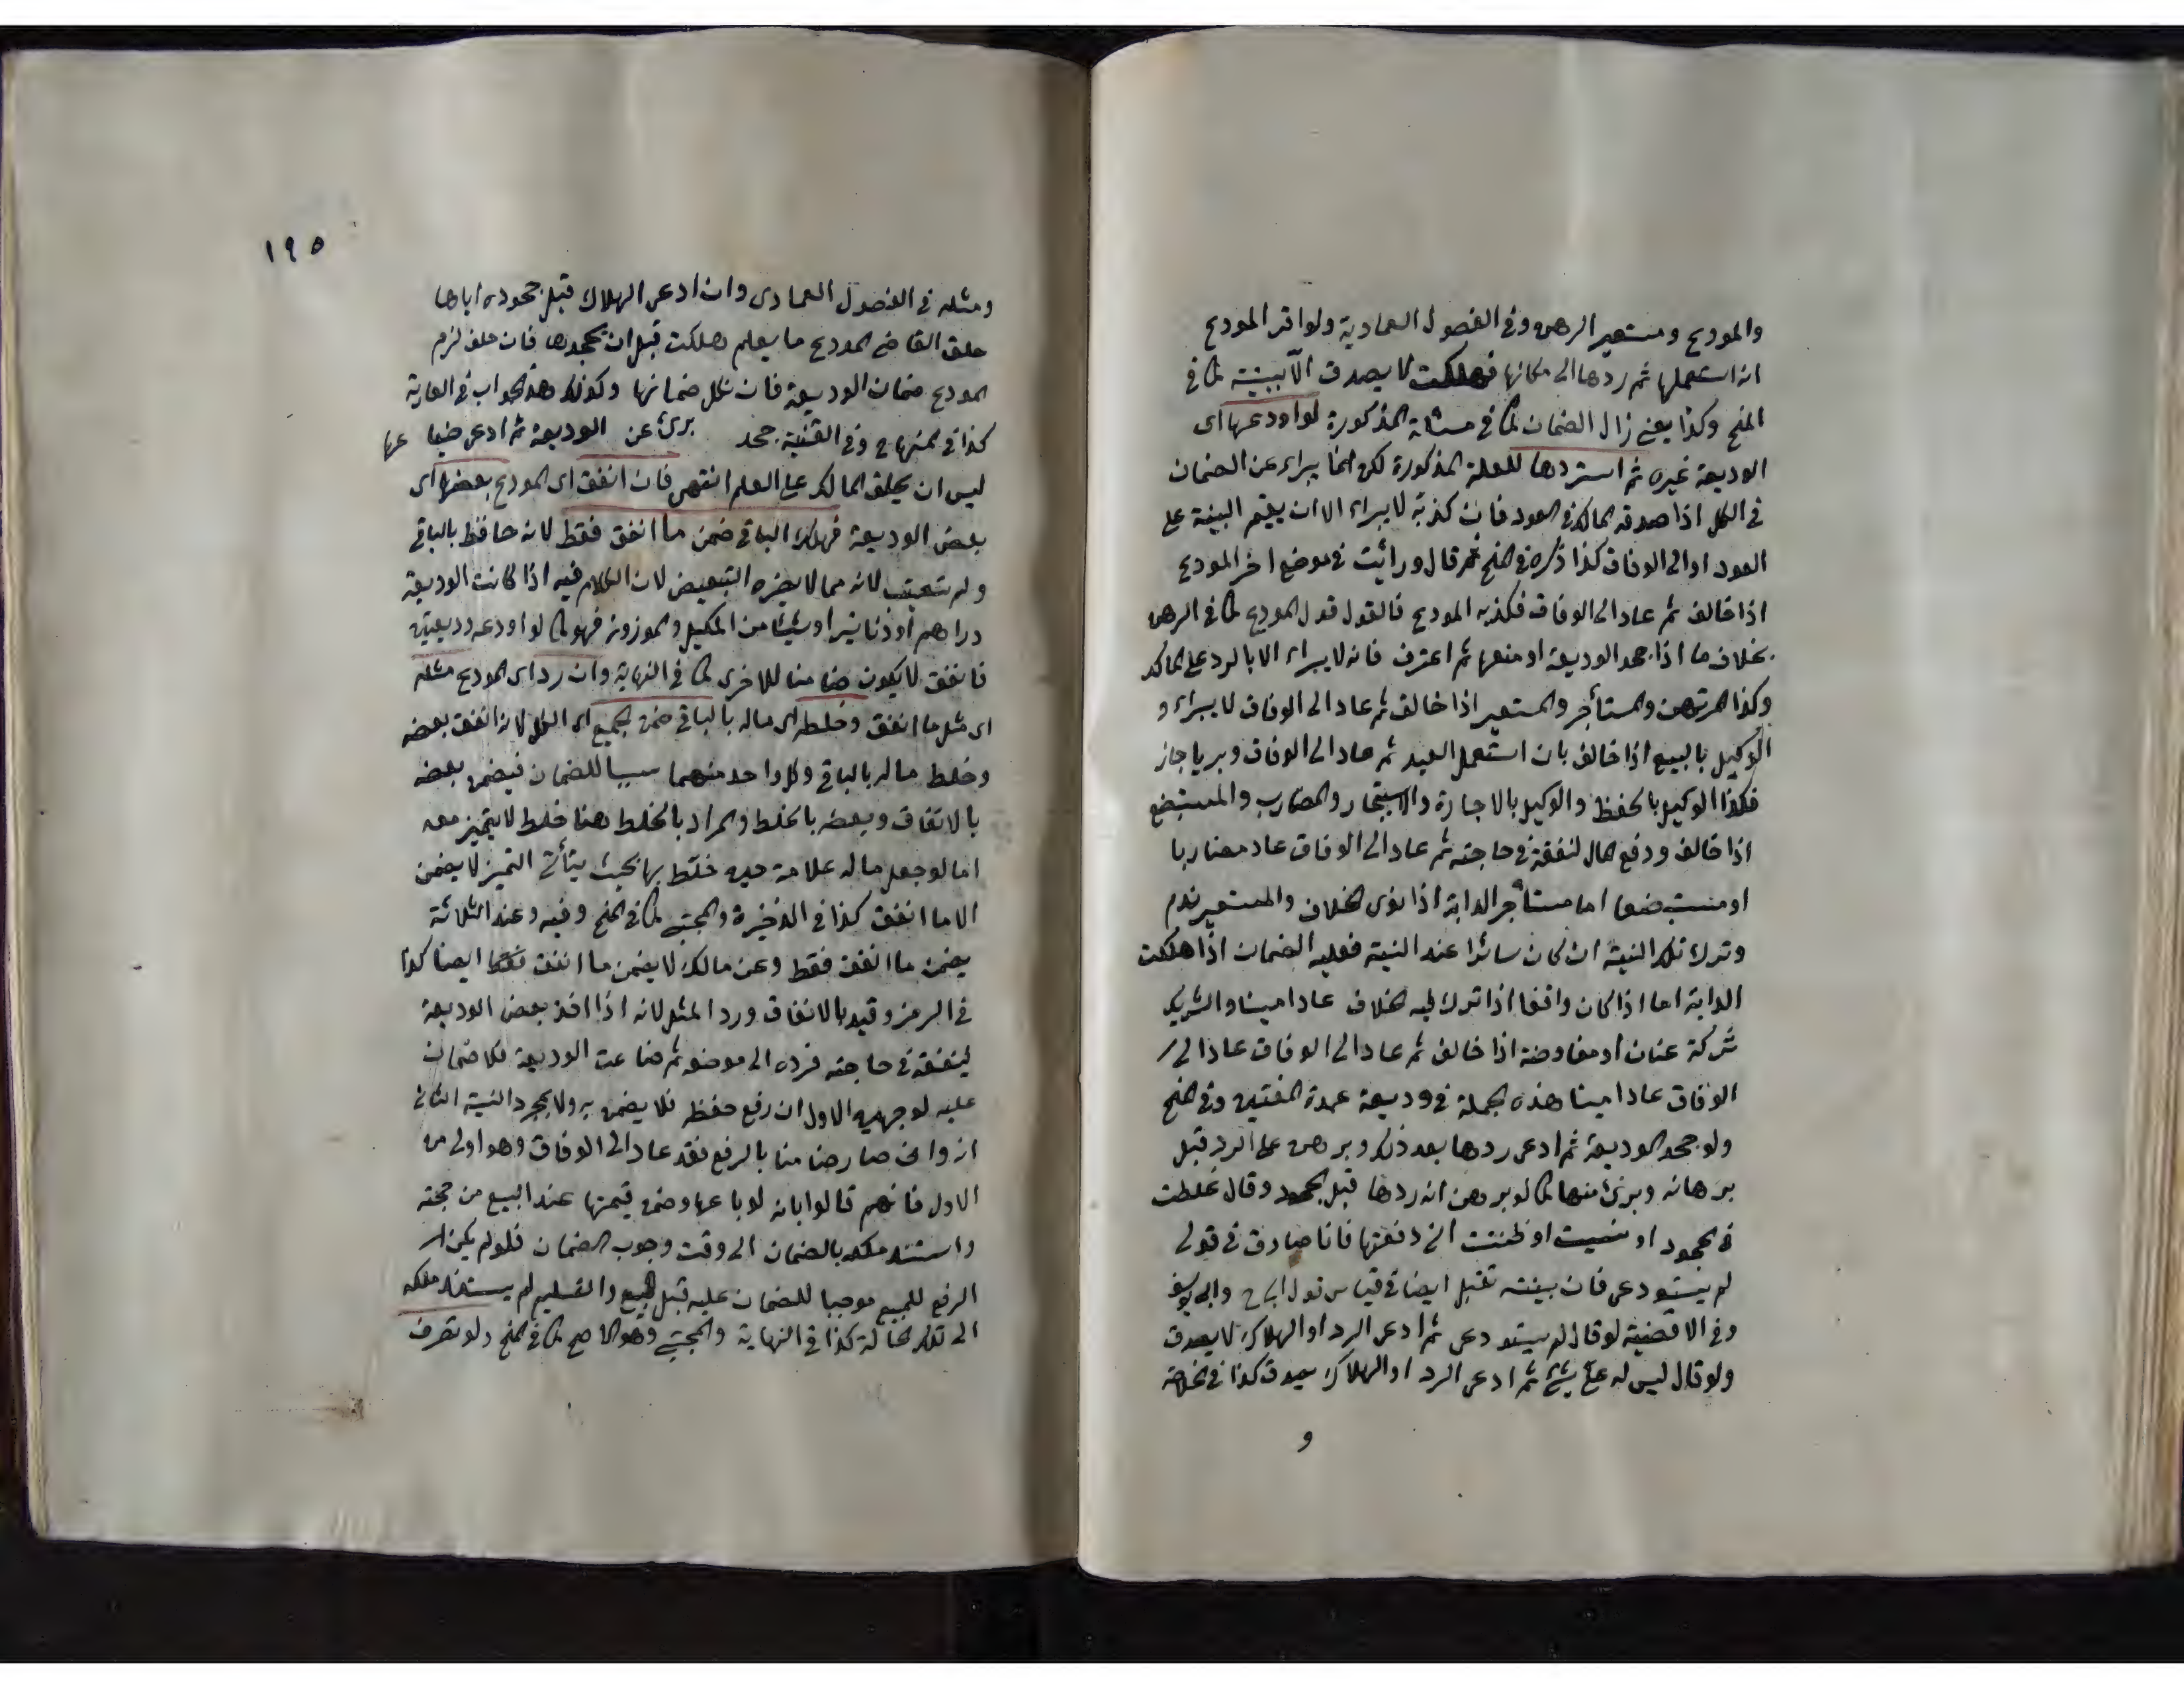 والمودع ومستعير الرهن وفي الفصول العمادية ولو اقر المودع
انه استعملها ثم ردها الى مكانها فهلكت لا يصدق الا ببينة كما في
المنح وكذا يعني زال الضمان كما في مسئلة المذكورة لو اودعها اى
الوديعة غيره ثم استردها للعلة المذكورة لكن انما يبراء عن الضمان
في الكل اذا صدقه المالك في العود فان كذبه لا يبراء الا ان يقيم البينة على
العود او الى الوفاق كذا ذكره في المنح ثم قال ورأيت في موضع اخر المودع
اذا خالف ثم عاد الى الوفاق فكذبه المودع فالقول قول المودع كما في الرهن
بخلاف ما اذا جحد الوديعة او منعها ثم اعترف فانه لا يبراء الا بالرد على المالك
وكذا المرتهن والمستأجر والمستعير اذا خالف ثم عاد الى الوفاق لا يبراء و
الوكيل بالبيع اذا خالف بان استعمل العبد ثم عاد الى الوفاق وبريا جاز
فكذا الوكيل بالحفظ والوكيل بالاجارة والاستيجار والمضارب والمستبضع
اذا خالف ودفع المال لنفقة في حاجته ثم عاد الى الوفاق عاد مضاربا
او مستبضعا اما مستأجر الدابة اذا نوى الخلاف والمستعير ندم
وترك تلك النية ان كان سائرا عند النية فعليه الضمان اذا هلكت
الدابة اما اذا كان واقفا اذا ترك نية الخلاف عاد امينا والشريك
شركة عنان او مفاوضة اذا خالف ثم عاد الى الوفاق عاد الى
الوفاق عاد امينا هذه الجملة في وديعة عمدة المفتين وفي المنح
ولو جحد الوديعة ثم ادعى ردها بعد ذلك وبرهن على الرد قبل
برهانه وبرئ منها كما لو برهن انه ردها قبل الجحود وقال غلطت
في الجحود او نسيت او ظننت اني دفعتها فانا صادق في قولي
لم يستودعنى فان بينته تقبل ايضا في قياس قول ابى ح وابى يوسف
وفي الاقضية لو قال لم يستودعنى ثم ادعى الرد او الهلاك لا يصدق
ولو قال ليس له على شئ ثم ادعى الرد او الهلاك يصدق كذا في الخلاصة
و
١٩٥
ومثله في الفصول العمادى وان ادعى الهلاك قبل جحوده اياها
حلف القاضى المودع ما يعلم هلكت قبل ان يجحدها فان حلف لزم
المودع ضمان الوديعة فان نكل ضمانها وكذلك هذا الجواب في العارية
كذا في المنهاج وفي القنية جحد برئ عن الوديعة ثم ادعى ضياعها
ليس ان يحلف المالك على العلم انتهى فان انفق اى المودع بعضها اى
بعض الوديعة فهلك الباقي ضمن ما انفق فقط لانه حافظ بالباقي
ولم تتعيب لانه مما لا يضره التبعيض لان الكلام فيه اذا كانت الوديعة
دراهم او دنانير او شيئا من المكيل والموزون فهو كما لو اودعه وديعتين
فانفق لا يكون ضامنا للاخرى كما في النهاية وان رد اى المودع مثله
اى مثل ما انفق وخلطه اى ماله بالباقي ضمن الجميع اى الكل لانه انفق بعضه
وخلط ماله بالباقي وكل واحد منهما سببا للضمان فيضمن بعضه
بالانفاق وبعضه بالخلط والمراد بالخلط هنا خلط لا يتميز معه
اما لو جعل ماله علامة حين خلط بها بحيث يتأتى التميز لا يضمن
الا ما انفق كذا في الذخيرة والمجتبى كما في المنح وفيه وعند الثلاثة
يضمن ما انفق فقط وعن مالك لا يضمن ما انفق فقط ايضا كذا
في الرمز وقيد بالانفاق ورد المثل لانه اذا اخذ بعض الوديعة
لينفقه في حاجته فرده الى موضعه ثم ضاعت الوديعة فلا ضمان
عليه لوجهين الاول ان رفع حفظ فلا يضمن به ولا بمجرد النية الثانى
انه وان صار ضامنا بالرفع فقد عاد الى الوفاق وهو اولى من
الاول فانهم قالوا بانه لو باعها وضمن قيمتها عند البيع من جهته
واستند ملكه بالضمان الى وقت وجوب الضمان فلو لم يكن
الرفع للبيع موجبا للضمان عليه قبل البيع والتسليم لم يستند ملكه
الى تلك الحالة كذا في النهاية والمجتبى وهو الاصح كما في المنح ولو تصرف